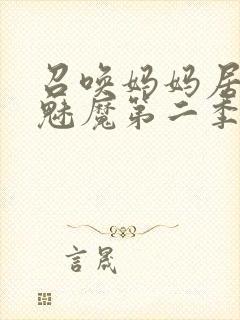 召唤妈妈居
魅魔第二季
言晟